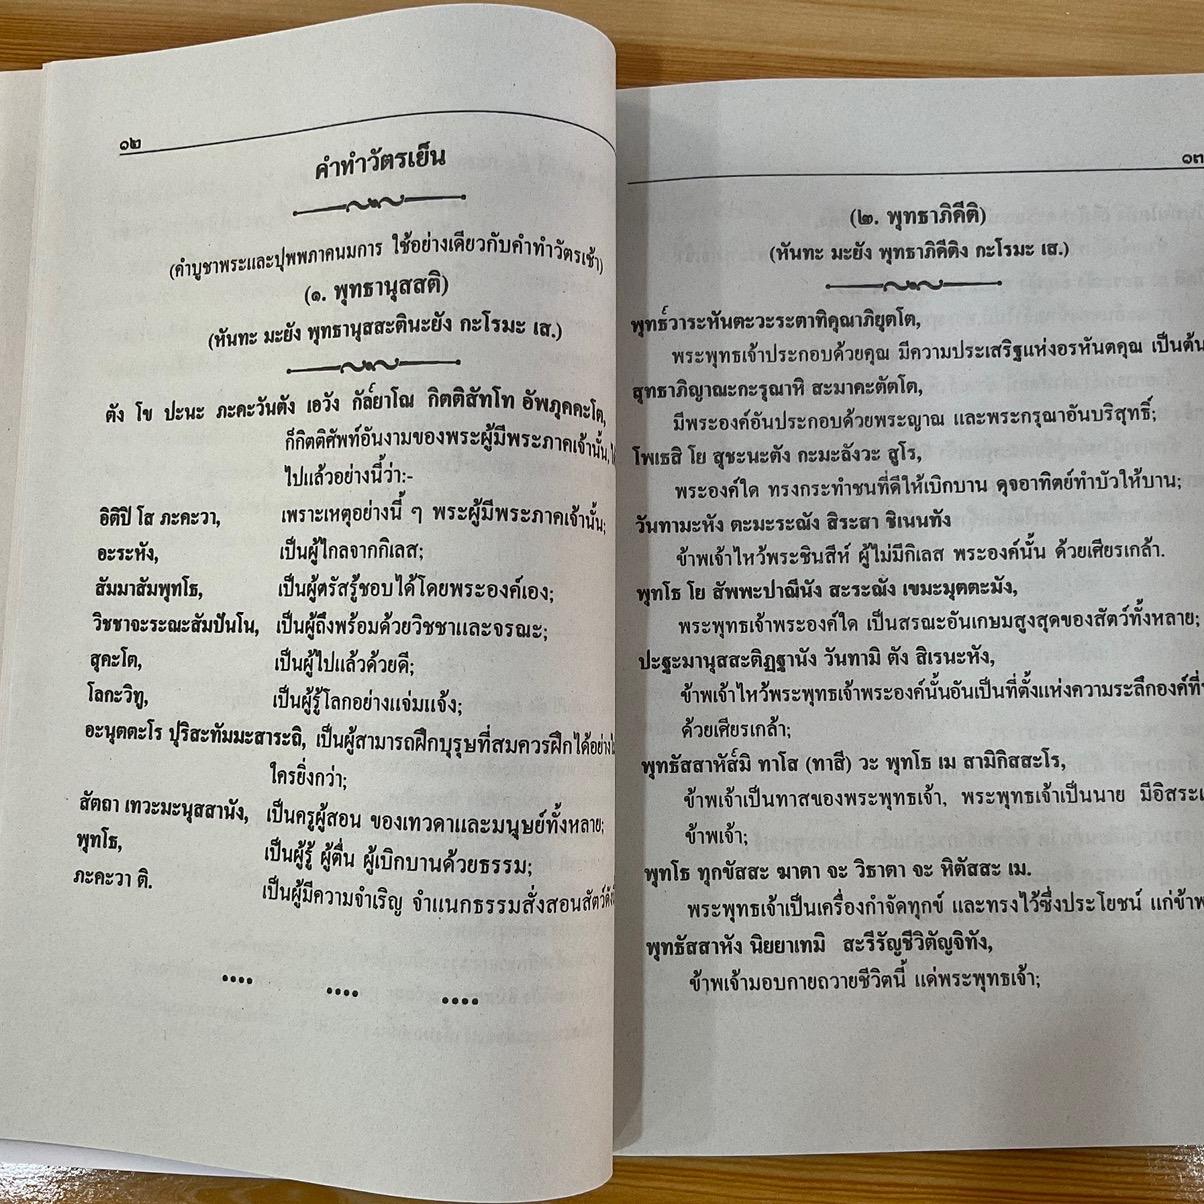 ๑๒
คำทำวัตรเย็น
(คำบูชาพระและปุพพภาคนมการ ใช้อย่างเดียวกับคำทำวัตรเช้า)
(๑. พุทธานุสสติ)
(หันทะ มะยัง พุทธานุสสะตินะยัง กะโรมะ เส.)
ตัง โข ปะนะ ภะคะวันตัง เอวัง กัล๎ยาโณ กิตติสัทโท อัพภุคคะโต,
ก็กิตติศัพท์อันงามของพระผู้มีพระภาคเจ้านั้น,
ไปแล้วอย่างนี้ว่า:-
อิติปิ โส ภะคะวา, เพราะเหตุอย่างนี้ ๆ พระผู้มีพระภาคเจ้านั้น;
อะระหัง, เป็นผู้ไกลจากกิเลส;
สัมมาสัมพุทโธ, เป็นผู้ตรัสรู้ชอบได้โดยพระองค์เอง;
วิชชาจะระณะสัมปันโน, เป็นผู้ถึงพร้อมด้วยวิชชาและจรณะ;
สุคะโต, เป็นผู้ไปแล้วด้วยดี;
โลกะวิทู, เป็นผู้รู้โลกอย่างแจ่มแจ้ง;
อะนุตตะโร ปุริสะทัมมะสาระถิ, เป็นผู้สามารถฝึกบุรุษที่สมควรฝึกได้อย่าง
ใครยิ่งกว่า;
สัตถา เทวะมะนุสสานัง, เป็นครูผู้สอน ของเทวดาและมนุษย์ทั้งหลาย;
พุทโธ, เป็นผู้รู้ ผู้ตื่น ผู้เบิกบานด้วยธรรม;
ภะคะวา ติ. เป็นผู้มีความจำเริญ จำแนกธรรมสั่งสอนสัตว์
๑๓
(๒. พุทธาภิคีติ)
(หันทะ มะยัง พุทธาภิคีติง กะโรมะ เส.)
พุทธ๎วาระหันตะวะระตาทิคุณาภิยุตโต,
พระพุทธเจ้าประกอบด้วยคุณ มีความประเสริฐแห่งอรหันตคุณ เป็นต้น
สุทธาภิญาณะกะรุณาหิ สะมาคะตัตโต,
มีพระองค์อันประกอบด้วยพระญาณ และพระกรุณาอันบริสุทธิ์;
โพเธสิ โย สุชะนะตัง กะมะลังวะ สูโร,
พระองค์ใด ทรงกระทำชนที่ดีให้เบิกบาน ดุจอาทิตย์ทำบัวให้บาน;
วันทามะหัง ตะมะระณัง สิระสา ชิเนนทัง
ข้าพเจ้าไหว้พระชินสีห์ ผู้ไม่มีกิเลส พระองค์นั้น ด้วยเศียรเกล้า.
พุทโธ โย สัพพะปาณีนัง สะระณัง เขมะมุตตะมัง,
พระพุทธเจ้าพระองค์ใด เป็นสรณะอันเกษมสูงสุดของสัตว์ทั้งหลาย;
ปะฐะมานุสสะติฏฐานัง วันทามิ ตัง สิเรนะหัง,
ข้าพเจ้าไหว้พระพุทธเจ้าพระองค์นั้นอันเป็นที่ตั้งแห่งความระลึกองค์ที่
ด้วยเศียรเกล้า;
พุทธัสสาหัส๎มิ ทาโส (ทาสี) วะ พุทโธ เม สามิกิสสะโร,
ข้าพเจ้าเป็นทาสของพระพุทธเจ้า, พระพุทธเจ้าเป็นนาย มีอิสระ
ข้าพเจ้า;
พุทโธ ทุกขัสสะ ฆาตา จะ วิธาตา จะ หิตัสสะ เม.
พระพุทธเจ้าเป็นเครื่องกำจัดทุกข์ และทรงไว้ซึ่งประโยชน์ แก่ข้า
พุทธัสสาหัง นิยยาเทมิ สะรีรัญชีวิตัญจิทัง,
ข้าพเจ้ามอบกายถวายชีวิตนี้ แด่พระพุทธเจ้า;